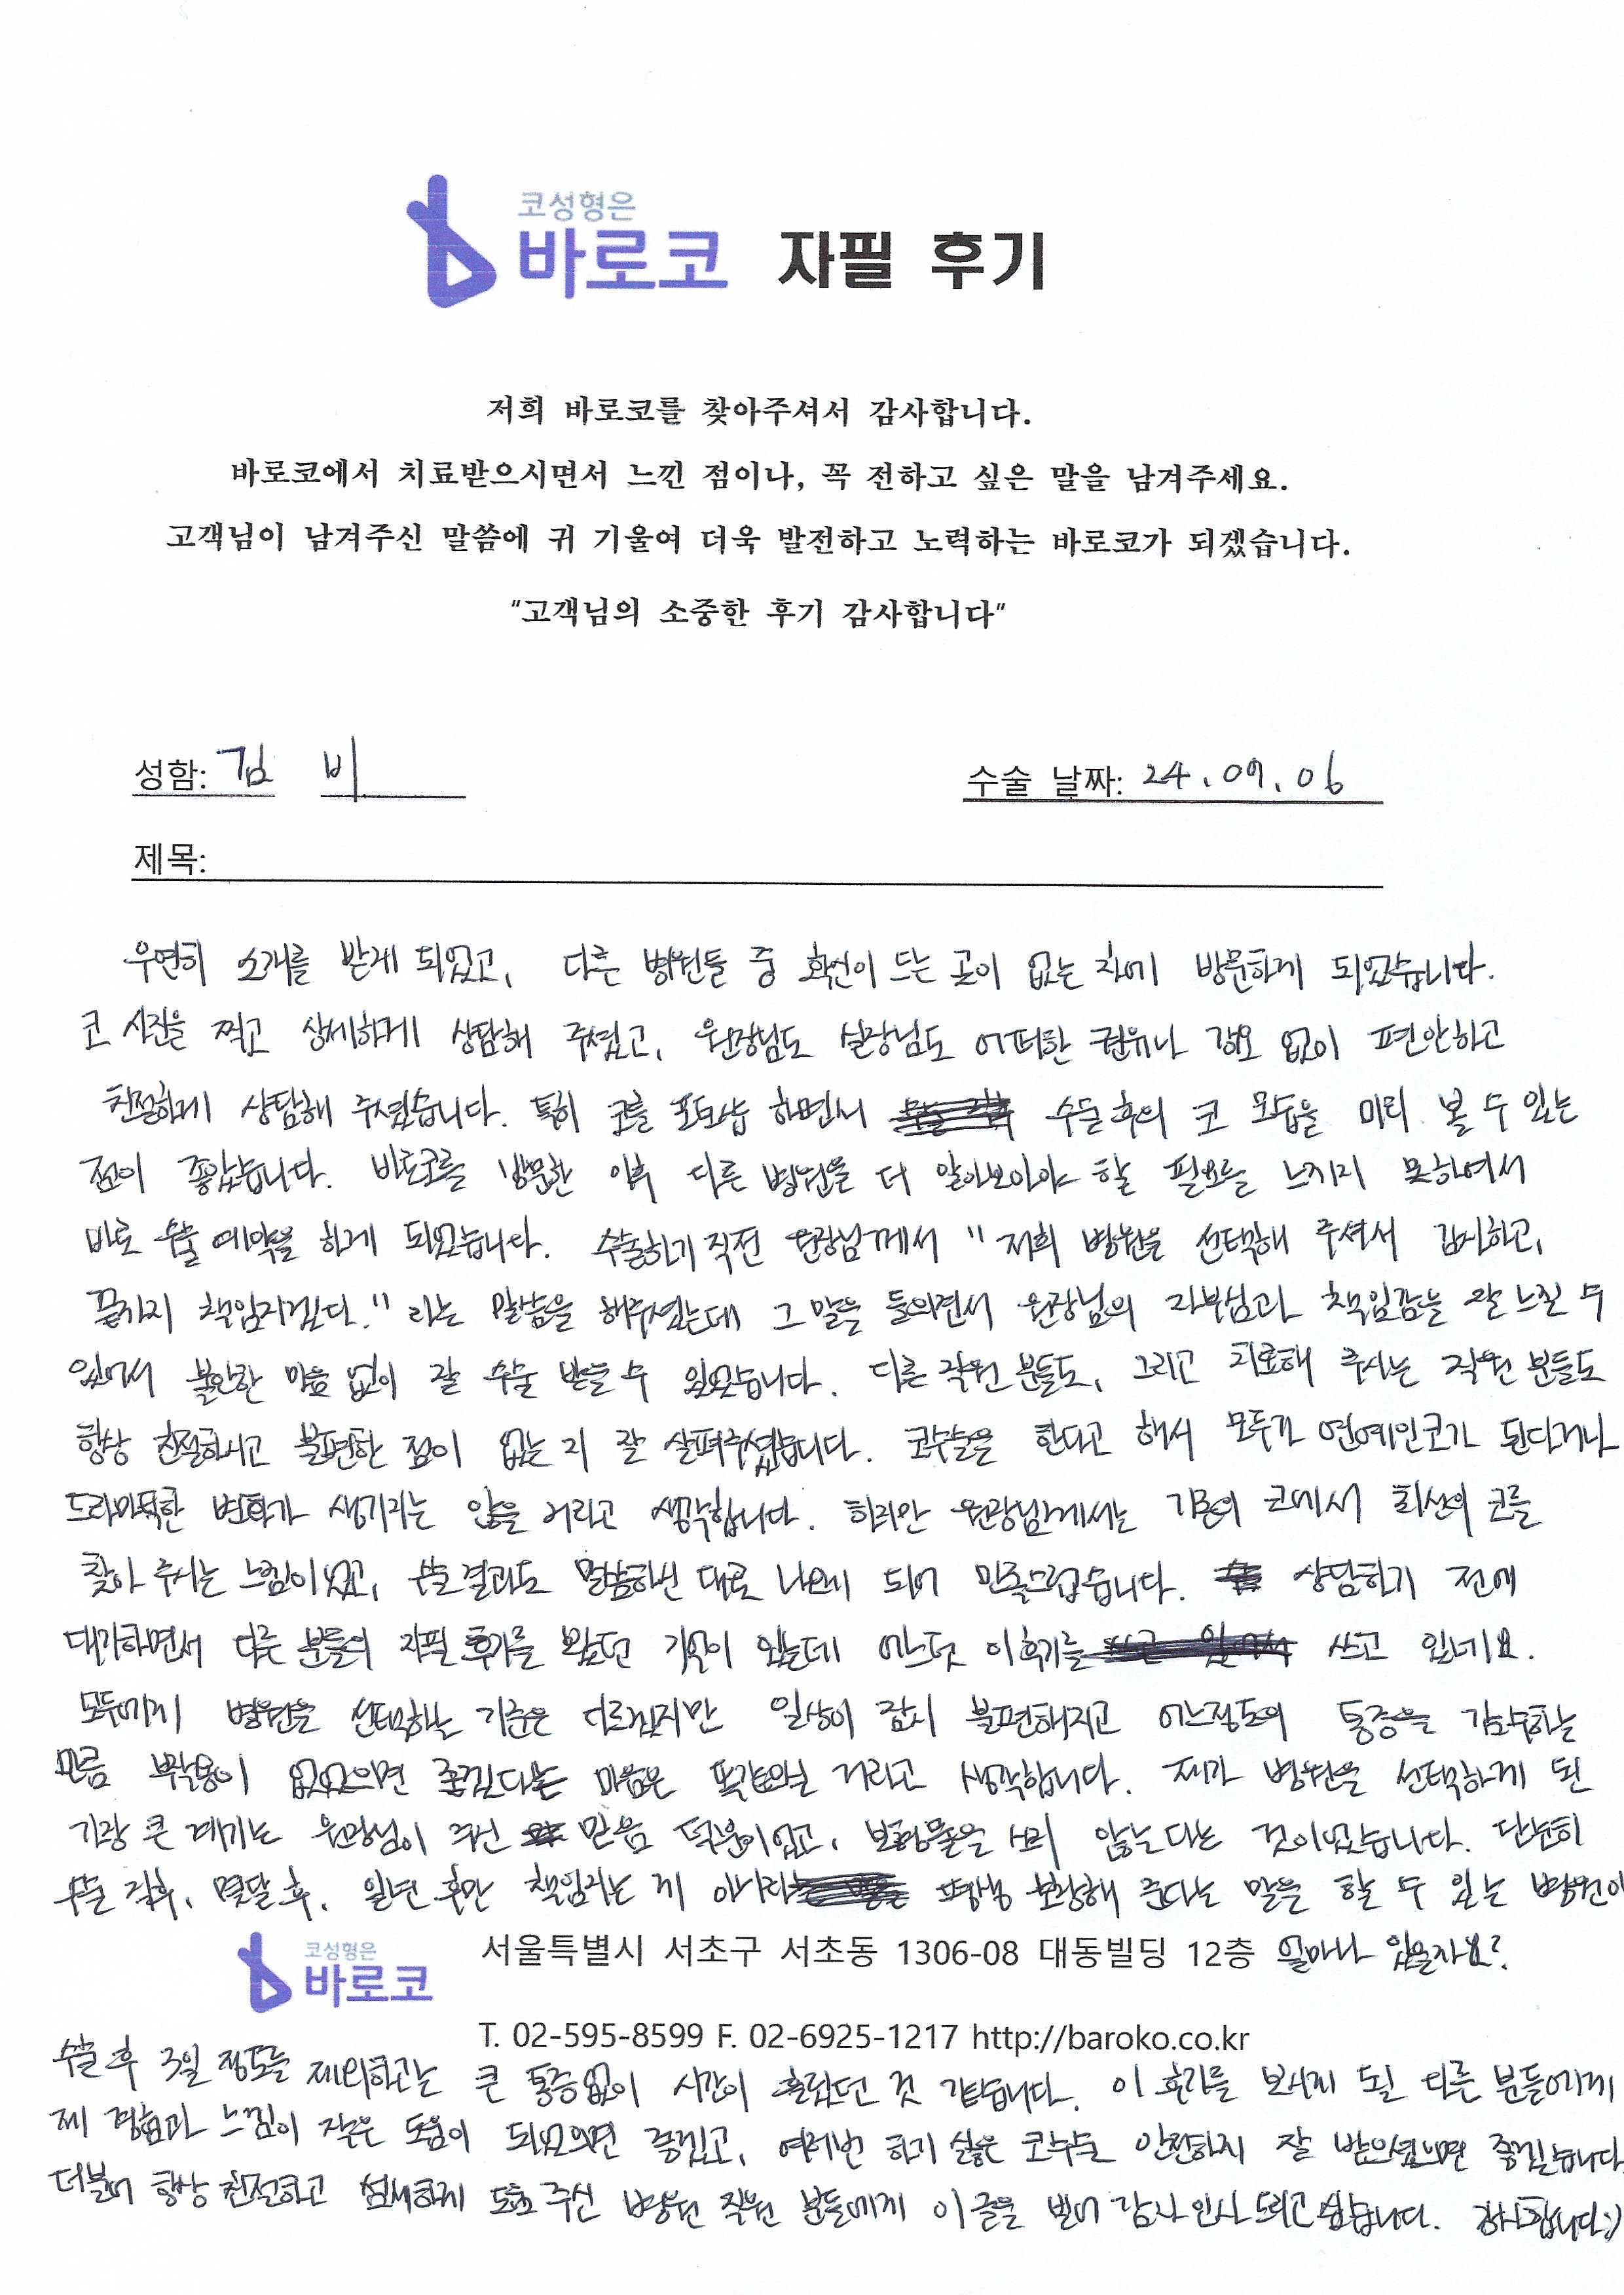 코성형은
바로코 자필 후기
저희 바로코를 찾아주셔서 감사합니다.
바로코에서 치료받으시면서 느낀 점이나, 꼭 전하고 싶은 말을 남겨주세요.
고객님이 남겨주신 말씀에 귀 기울여 더욱 발전하고 노력하는 바로코가 되겠습니다.
"고객님의 소중한 후기 감사합니다"
성함: 김 비 수술 날짜: 24.09.06
제목:
우연히 소개를 받게 되었고, 다른 병원들 중 확신이 드는 곳이 없는 차에 방문하게 되었습니다.
코 사진을 찍고 상세하게 상담해 주셨고, 원장님도 실장님도 어떠한 권유나 강요 없이 편안하고
친절하게 상담해 주셨습니다. 특히 코를 포토샵 하면서 수술 후의 코 모습을 미리 볼 수 있는
점이 좋았습니다. 바로코를 방문한 이후 다른 병원을 더 알아보아야 할 필요를 느끼지 못하여서
바로 수술 예약을 하게 되었습니다. 수술하기 직전 원장님께서 "저희 병원을 선택해 주셔서 감사하고,
끝까지 책임지겠다." 라는 말씀을 해주셨는데 그 말을 들으면서 원장님의 자부심과 책임감을 잘 느낄 수
있어서 불안한 마음 없이 잘 수술 받을 수 있었습니다. 다른 직원 분들도, 그리고 치료해 주시는 직원 분들도
항상 친절하시고 불편한 점이 없는 지 잘 살펴주셨습니다. 코수술을 한다고 해서 모두가 연예인코가 된다거나
드라마틱한 변화가 생기지는 않을 거라고 생각합니다. 하지만 원장님께서는 기존의 코에서 최선의 코를
찾아 주시는 느낌이었고, 수술결과도 말씀하신 대로 나오게 되어 만족스럽습니다. 상담하기 전에
대기하면서 다른 분들의 자필 후기를 봤던 기억이 있는데 어느덧 이 후기를 쓰고 있네요.
모두에게 병원을 선택하는 기준은 다르겠지만 일상이 잠시 불편해지고 어느정도의 통증을 감수하는
만큼 부작용이 없었으면 좋겠다는 마음은 똑같으실 거라고 생각합니다. 제가 병원을 선택하게 된
가장 큰 계기는 원장님이 주신 믿음 덕분이었고, 보형물을 쓰지 않는다는 것이었습니다. 단순히
수술 직후, 몇달 후, 일년 후만 책임지는 게 아니라 평생 보장해 준다는 말을 할 수 있는 병원이
코성형은
바로코 서울특별시 서초구 서초동 1306-08 대동빌딩 12층 얼마나 있을까요?
T. 02-595-8599 F. 02-6925-1217 http://baroko.co.kr
수술 후 3일 정도를 제외하고는 큰 통증없이 시간이 흘렀던 것 같습니다. 이 후기를 보시게 될 다른 분들에게
제 경험과 느낌이 작은 도움이 되었으면 좋겠고, 여러번 하기 싫은 코수술 안전하게 잘 받으셨으면 좋겠습니다
더불어 항상 친절하고 섬세하게 도와 주신 병원 직원 분들에게 이 글을 빌어 감사 인사 드리고 싶습니다. 감사합니다:)